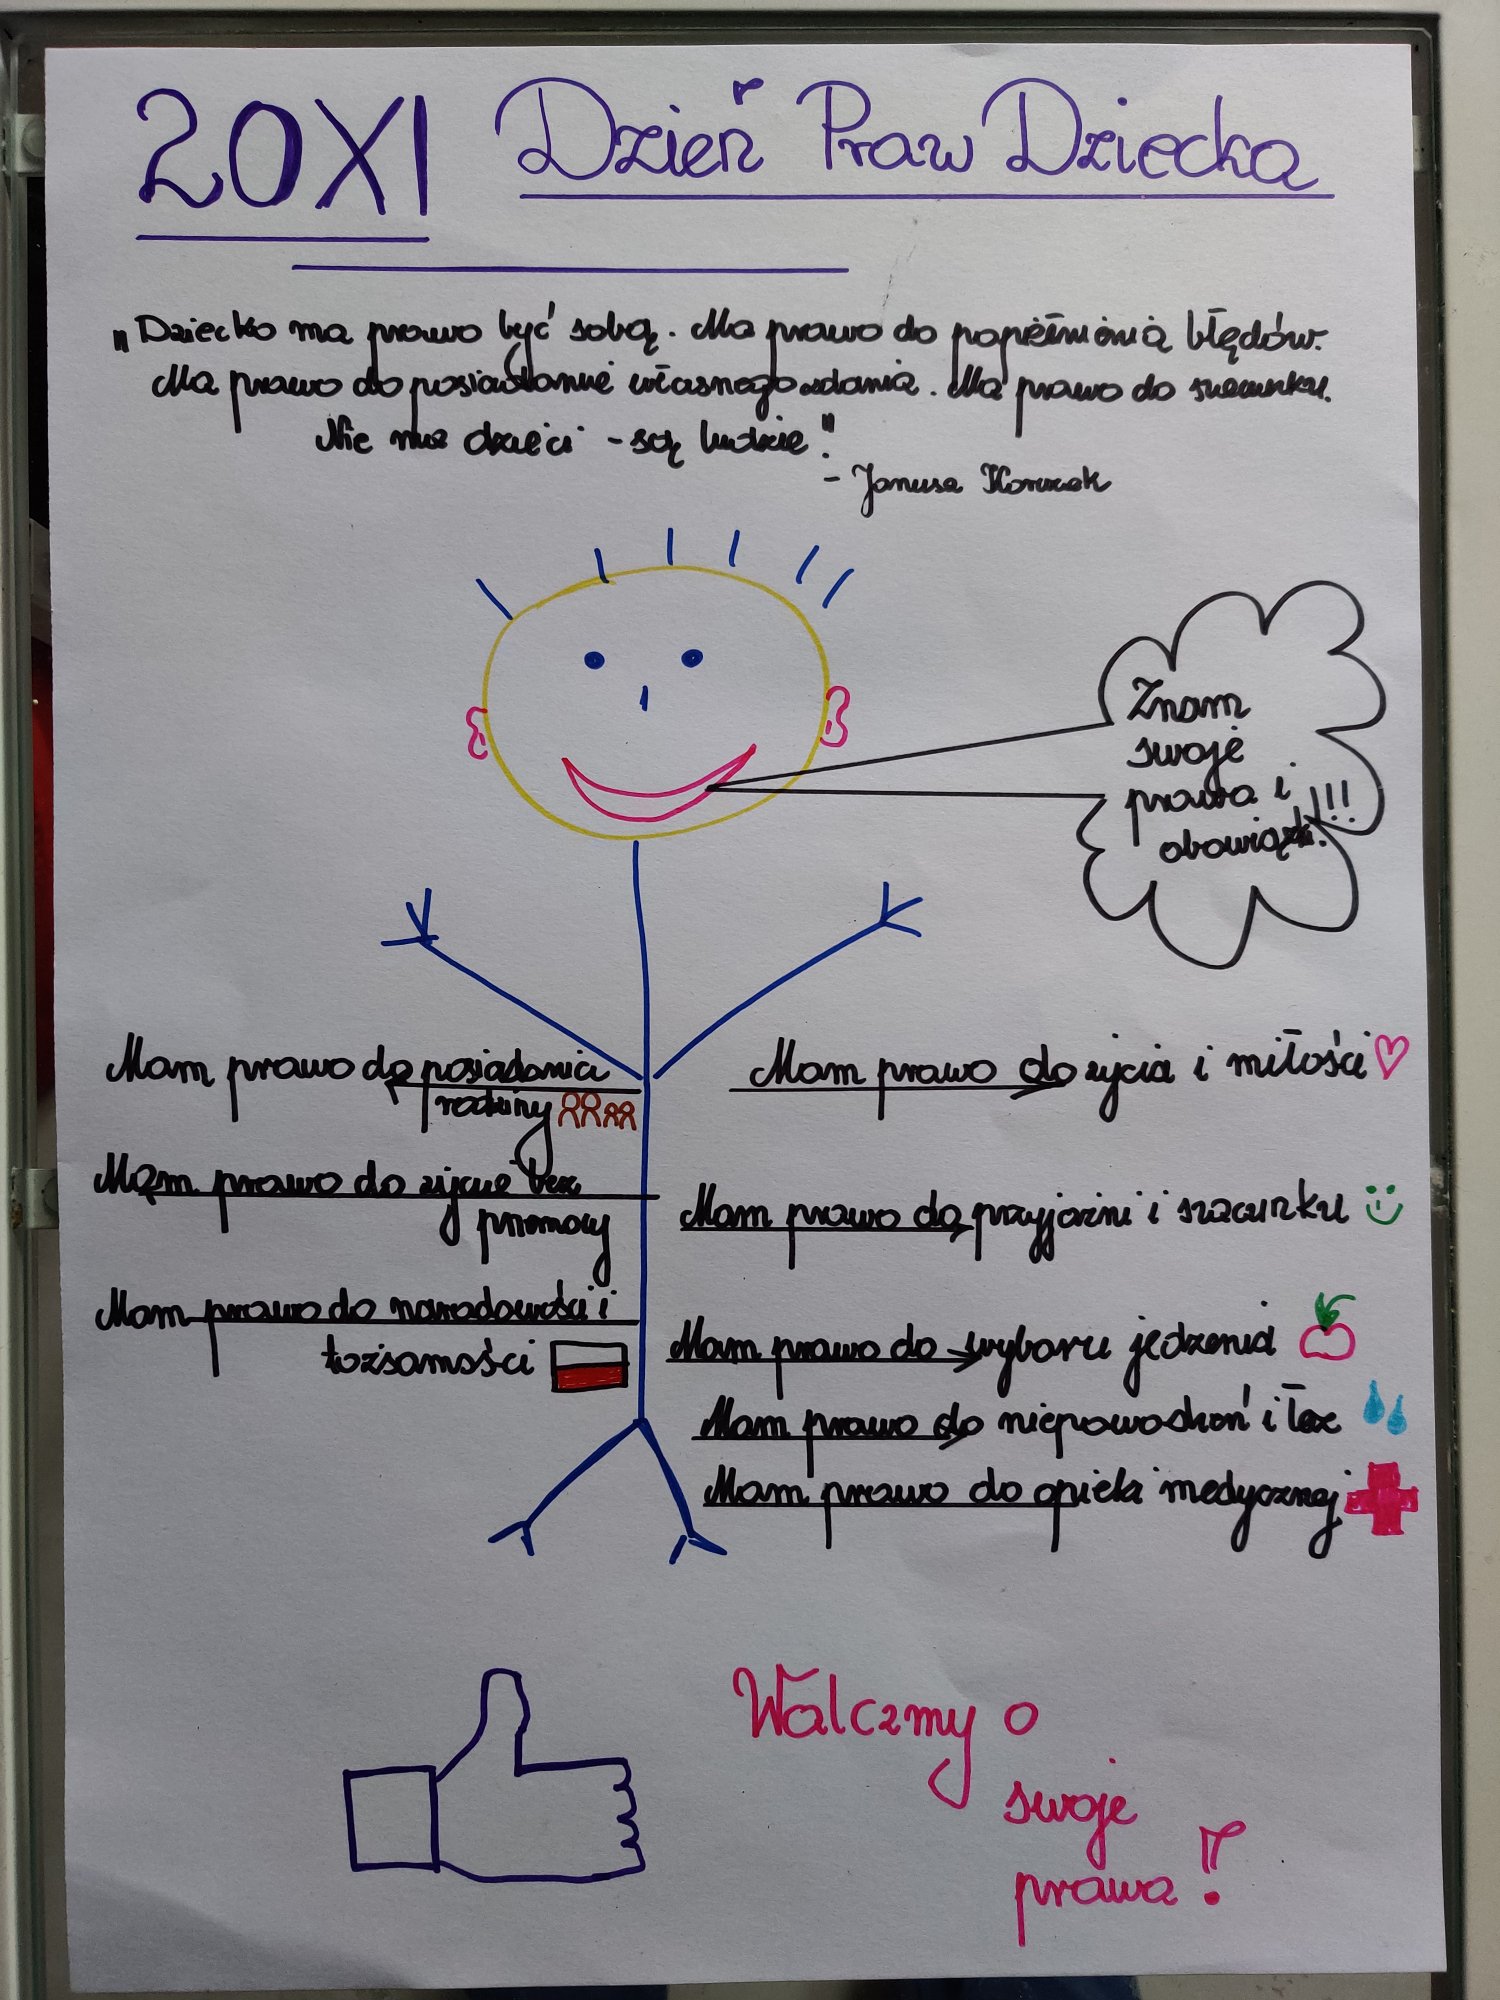 20XI Dzień Praw Dziecka
„Dziecko ma prawo być sobą. Ma prawo do popełnienia błędów.
Ma prawo do posiadanie własnego zdania. Ma prawo do szacunku.
Nie ma dzieci - są ludzie."
- Janusz Korczak
Znam
swoje
prawa i
obowiązki!!!
Mam prawo do posiadania
rodziny
Mam prawo do życie bez
przemocy
Mam prawo do narodowości i
tożsamości
Mam prawo do życia i miłości
Mam prawo do przyjaźni i szacunku
Mam prawo do wyboru jedzenia
Mam prawo do niepowodzeń i łez
Mam prawo do opieki medycznej
Walczmy o
swoje
prawa!